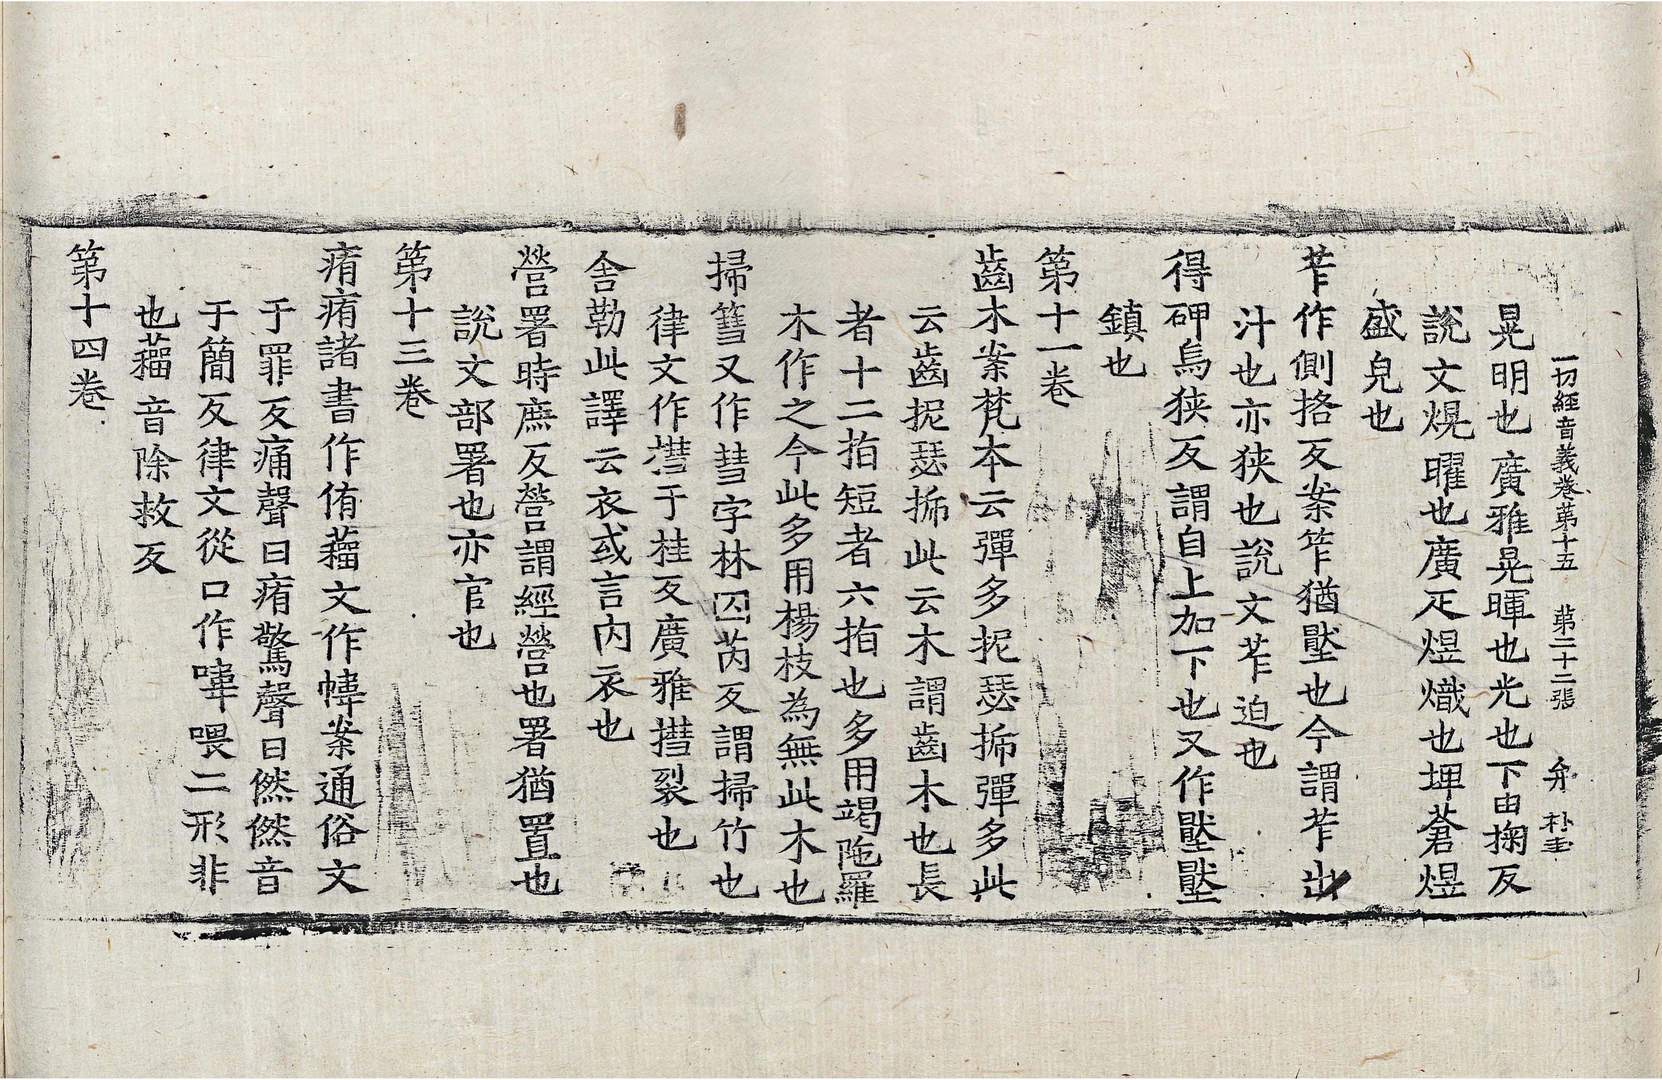 一切經音義卷第十五 苐二十二張 弁 补
晃明也廣雅晃暉也光也下由掬反
說文熀曜也廣疋煜熾也埤蒼煜
盛皃也
苲作側挌反案笮猶壓也今謂苲出
汁也亦狹也說文苲迫也
得砷烏狹反謂自上加下也又作壓壓
鎮也
第十一卷
齒木案梵本云彈多抳瑟搋彈多此
云齒抳瑟搋此云木謂齒木也長
者十二指短者六指也多用竭陁羅
木作之今此多用楊枝為無此木也
掃篲又作彗字林囚芮反謂掃竹也
律文作㨹于桂反廣雅㨹裂也
舍勒此譯云衣或言內衣也
營署時庶反營謂經營也署猶置也
說文部署也亦官也
第十三卷
痏痏諸書作侑籕文作㡔案通俗文
于罪反痛聲曰痏驚聲曰㷼㷼音
于簡反律文從口作嗺喂二形非
也籕音除救反
第十四卷